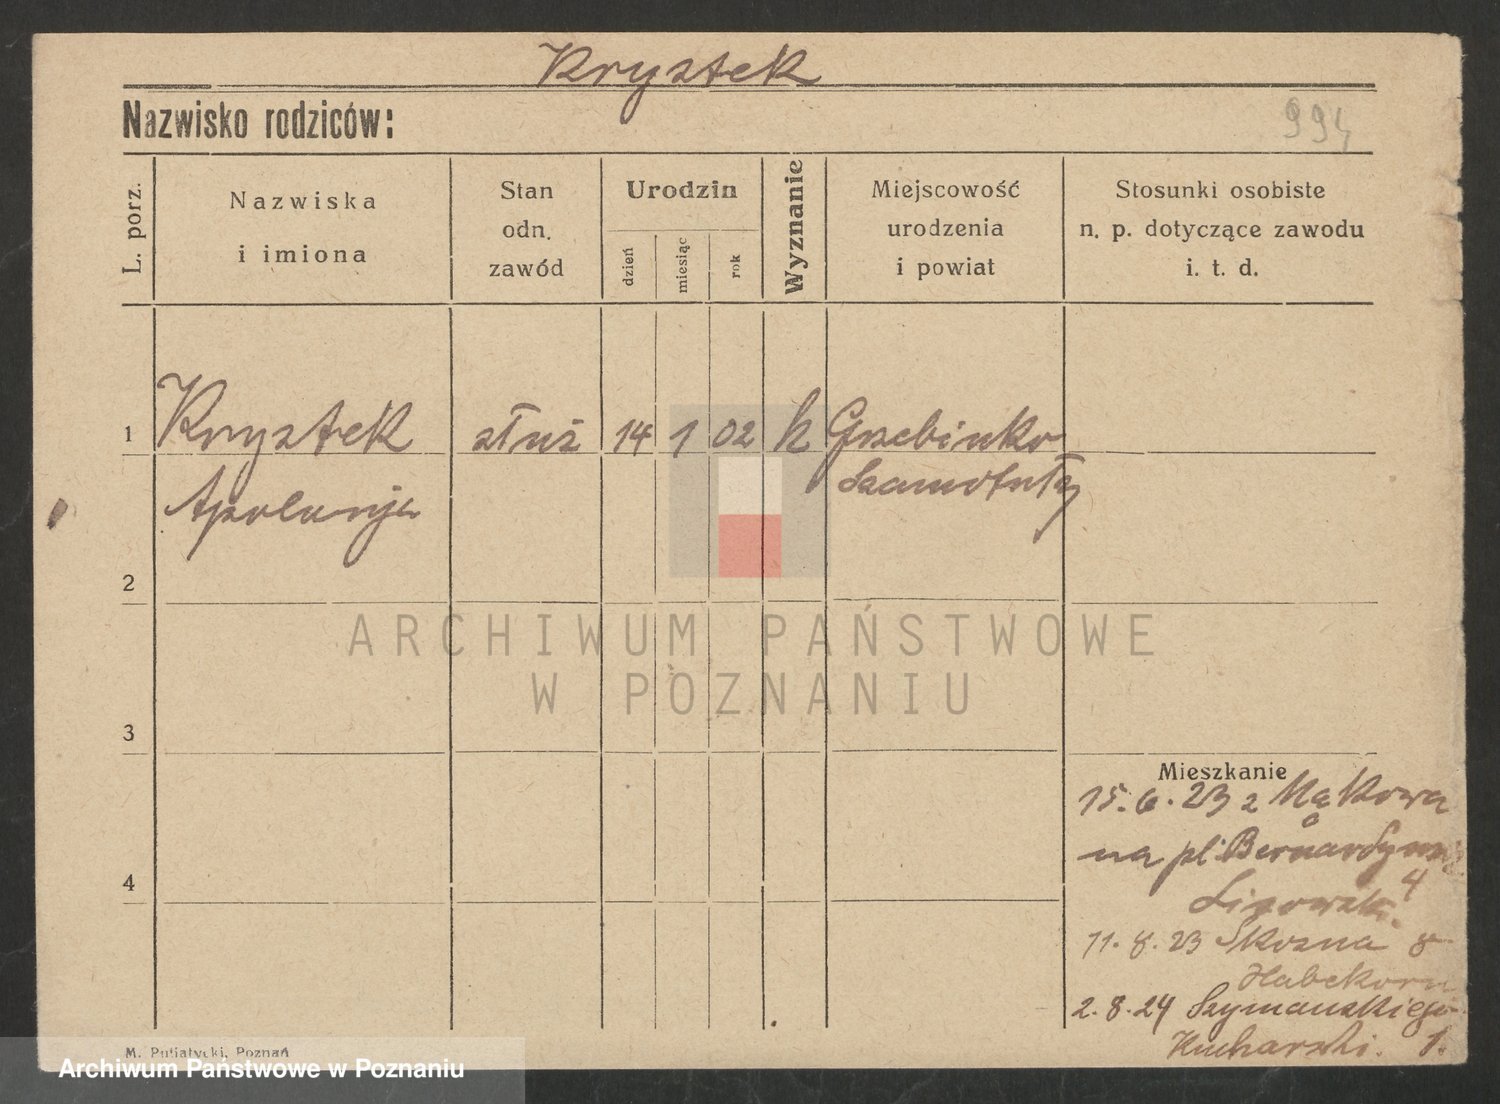 Krystek
Nazwisko rodziców:
994
L. porz.
Nazwiska
i imiona
Stan
odn.
zawód
Urodzin
dzień
miesiąc
rok
Wyznanie
Miejscowość
urodzenia
i powiat
Stosunki osobiste
n. p. dotyczące zawodu
i. t. d.
1 Krystek służ 14 1 02 k Grzebinko
Apolonja Szamotuły
2
ARCHIWUM PAŃSTWOWE
W POZNANIU
3
Mieszkanie
15.6.23 z
na pl. Bernardyn
4
4
11.8.23 8
Habekorn
2.8.24 Szymańskiego
Kucharski. 1.
M. Putiatycki, Poznań
Archiwum Państwowe w Poznaniu